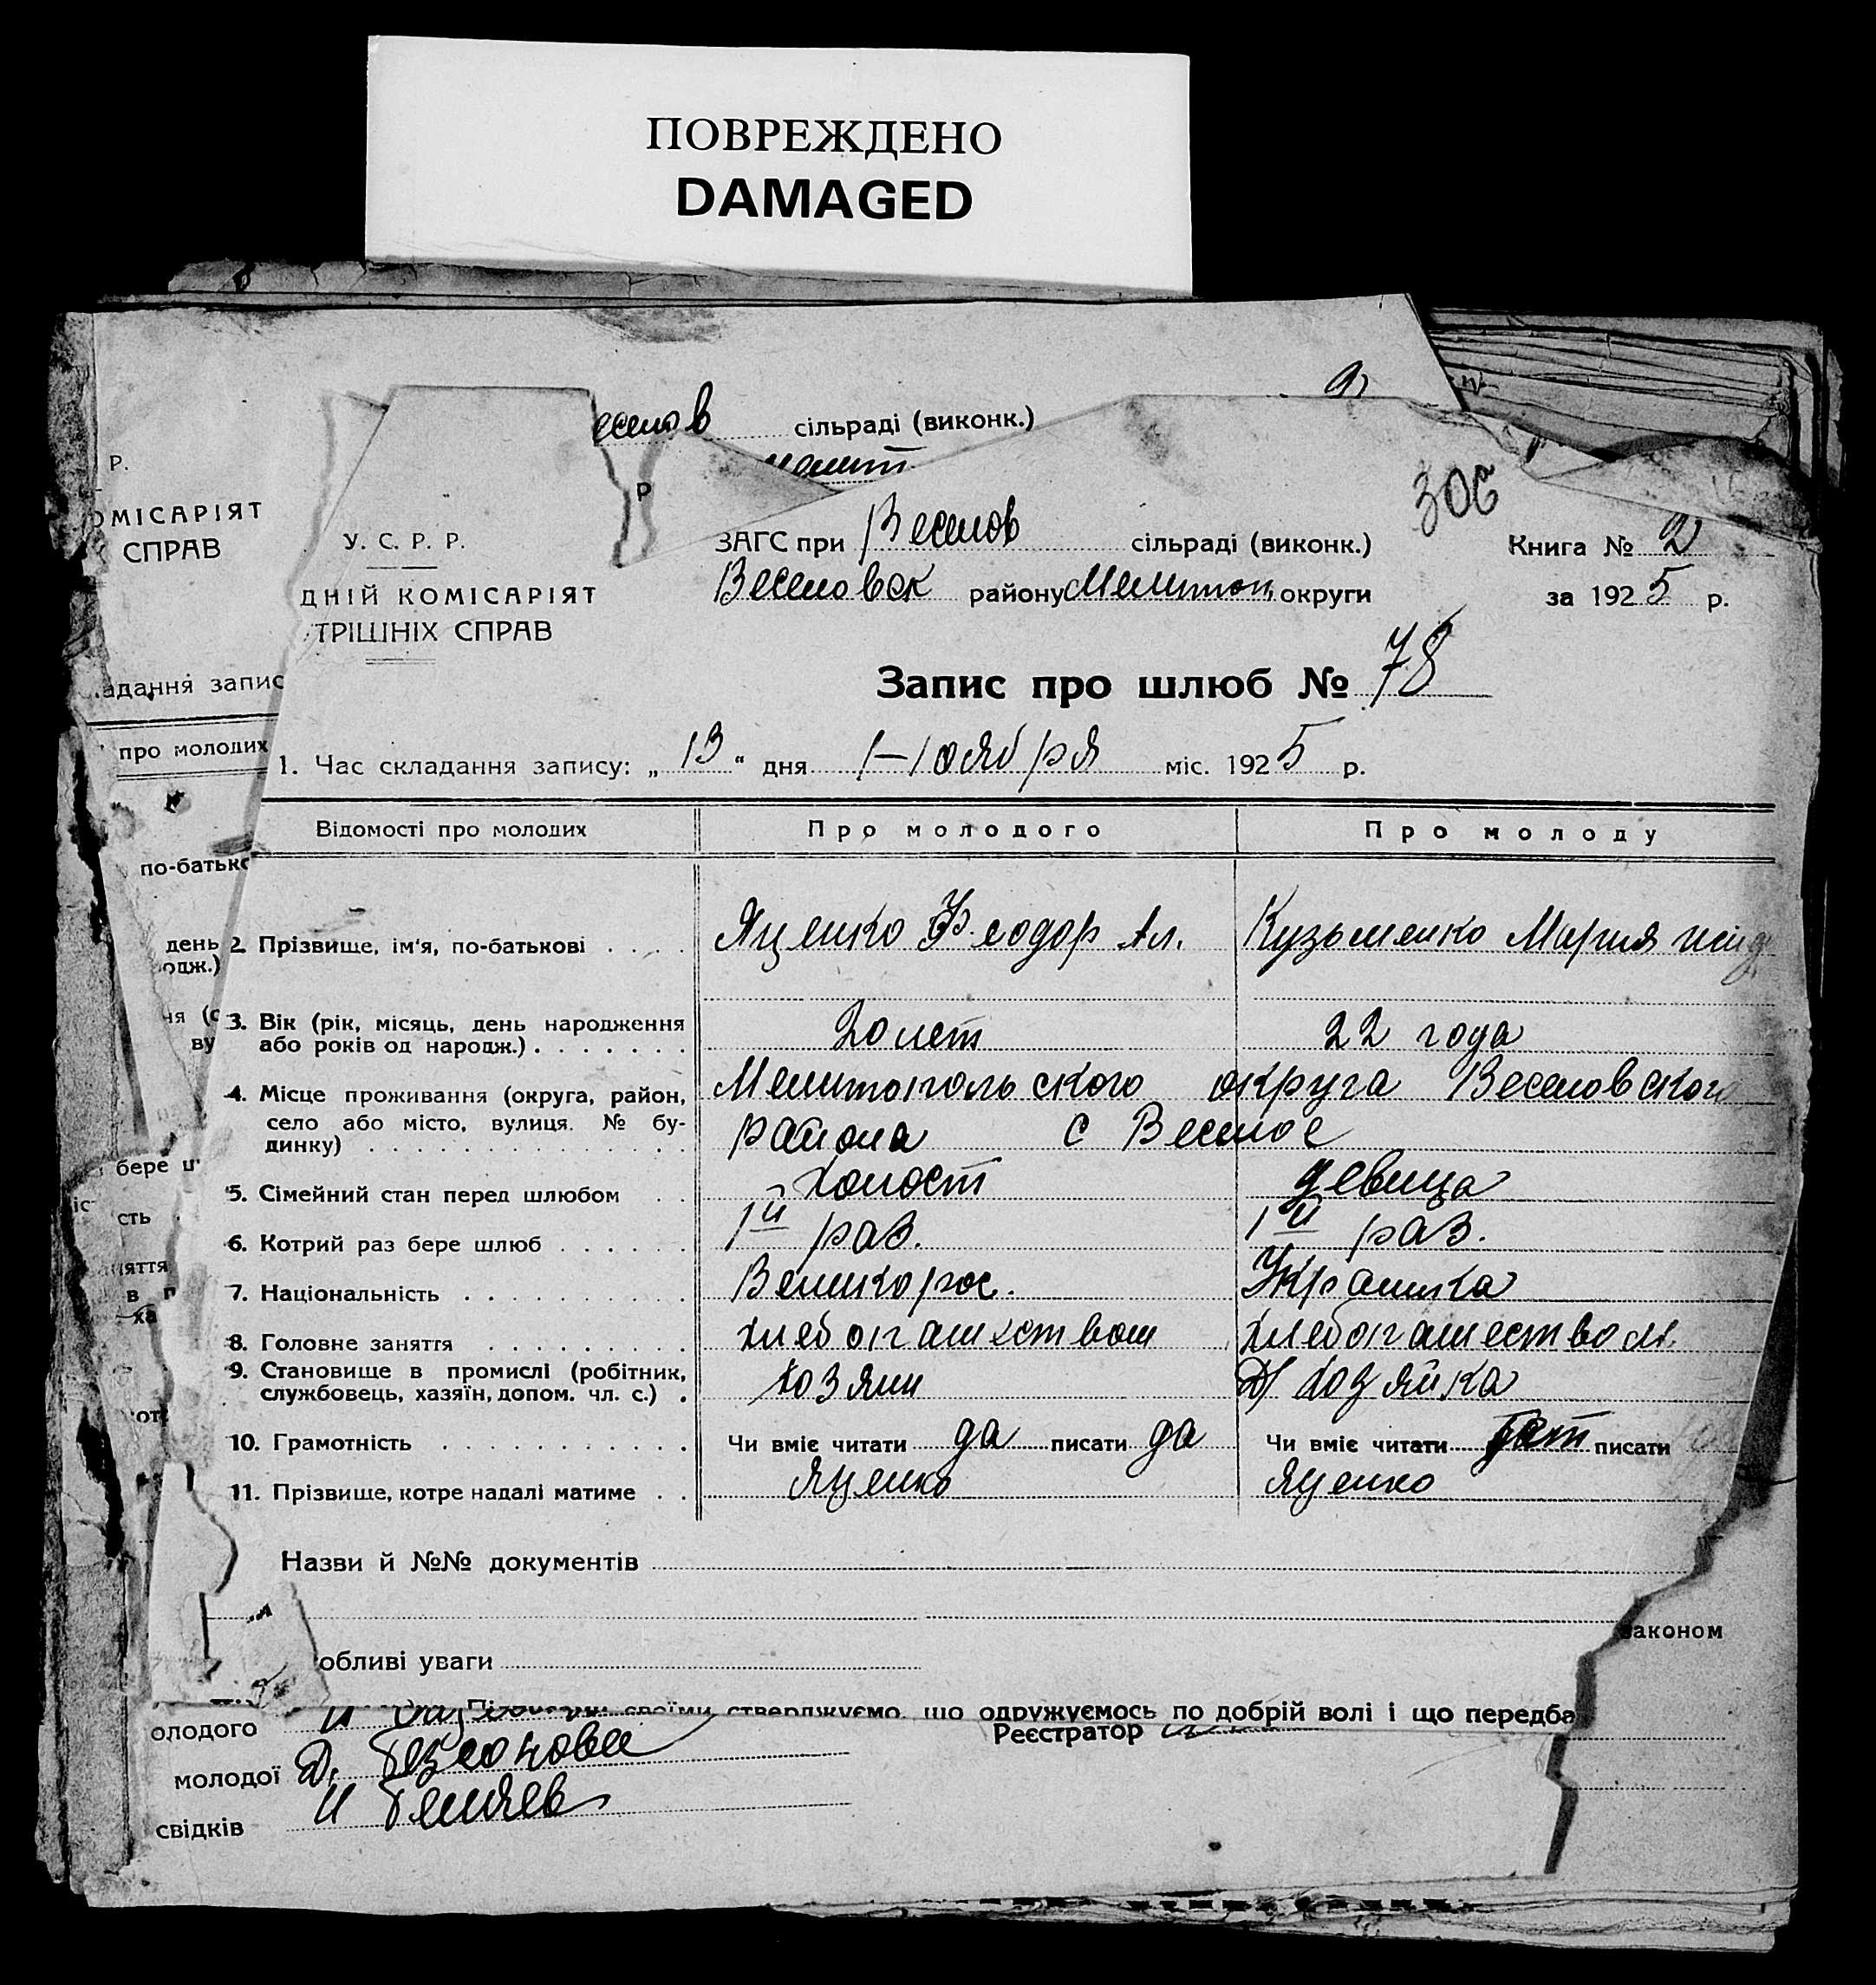 ПОВРЕЖДЕНО
DAMAGED
еселов сільраді (виконк.)
Р.
ОМІСАРІЯТ
СПРАВ
306
У. С. Р. Р.
ДНІЙ КОМІСАРІЯТ
ТРІШНІХ СПРАВ
ЗАГС при Веселов сільраді (виконк.)
Веселовск району Мелитоп. округи
Книга № 2
за 1925 р.
адання запис
Запис про шлюб № 78
1. Час складання запису: „13“ дня Ноября міс. 1925 р.
про молодих
Відомості про молодих Про молодого Про молоду
по-батько
день
одж.)
2. Прізвище, ім'я, по-батькові . . . . Яценко Феодор Ал. Кузьменко Мария
ня (с
ву
3. Вік (рік, місяць, день народження
або років од народж.) . . . . . . . 20 лет 22 года
4. Місце проживання (округа, район, Мелитопольского округа Веселовского
село або місто, вулиця. № бу-
динку) . . . . . . . . . . . . . . района с Веселое
бере ш
5. Сімейний стан перед шлюбом . . холост девица
сть
6. Котрий раз бере шлюб . . . . . . 1й раз. 1й раз.
аняття
в п
ха
7. Національність . . . . . . . . . . Великорос. Украинка
8. Головне заняття . . . . . . . . . хлебопашеством хлебопашеством.
9. Становище в промислі (робітник,
службовець, хазяїн, допом. чл. с.) . хозяин хозяйка
10. Грамотність . . . . . . . . . . . Чи вміє читати да писати да Чи вміє читати писати
11. Прізвище, котре надалі матиме . . Яценко Яценко
Назви й №№ документів
аконом
обливі уваги
своїми стверджуємо, що одружуємось по добрій волі і що передба
олодого
Реєстратор
молодої Д.
свідків И Беляев